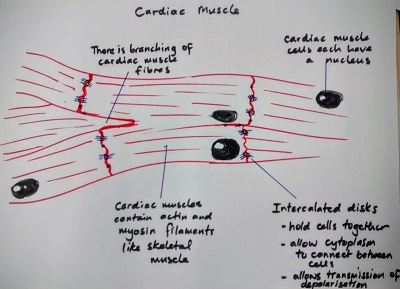 Cardiac Muscle
There is branching of
cardiac muscle
fibres
Cardiac muscle
cells each have
a nucleus
Cardiac muscles
contain actin and
myosin filaments
like skeletal
muscle
Intercalated disks
- hold cells together
- allow cytoplasm
to connect between
cells
- allows transmission of
depolarisation